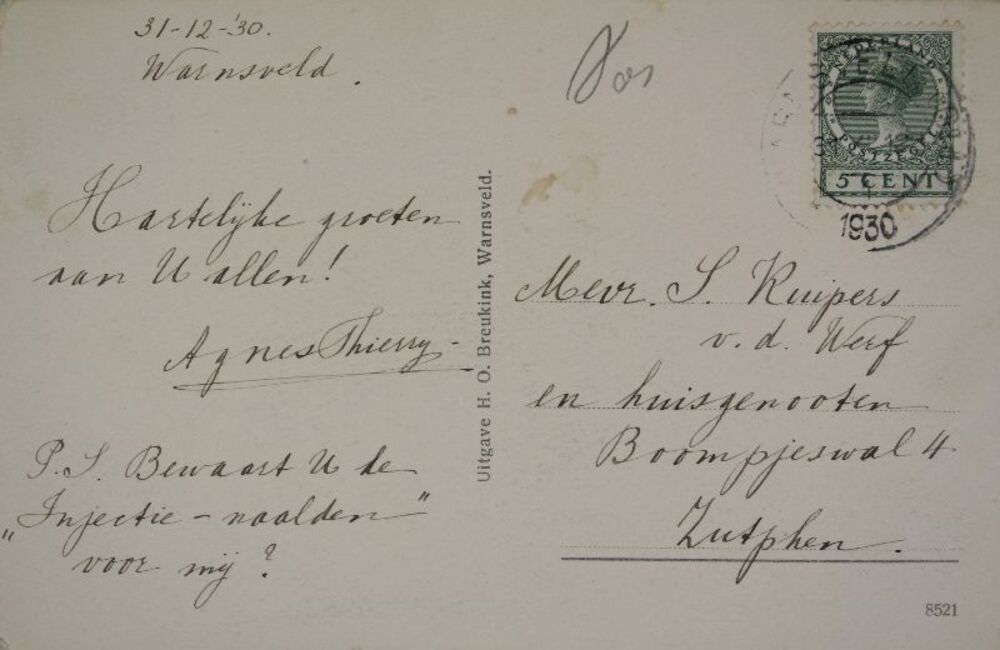 31-12-'30.
Warnsveld.
Hartelijke groeten
aan U allen!
Agnes Thierry-
P.S. Bewaart U de
„Injectie-naalden”
voor mij?
Uitgave H. O. Breukink, Warnsveld.
NEDERLAND
POSTZEGEL
5 CENT
1930
Mevr. S. Kuipers
v. d. Werf
en huisgenooten
Boompjeswal 4
Zutphen.
8521